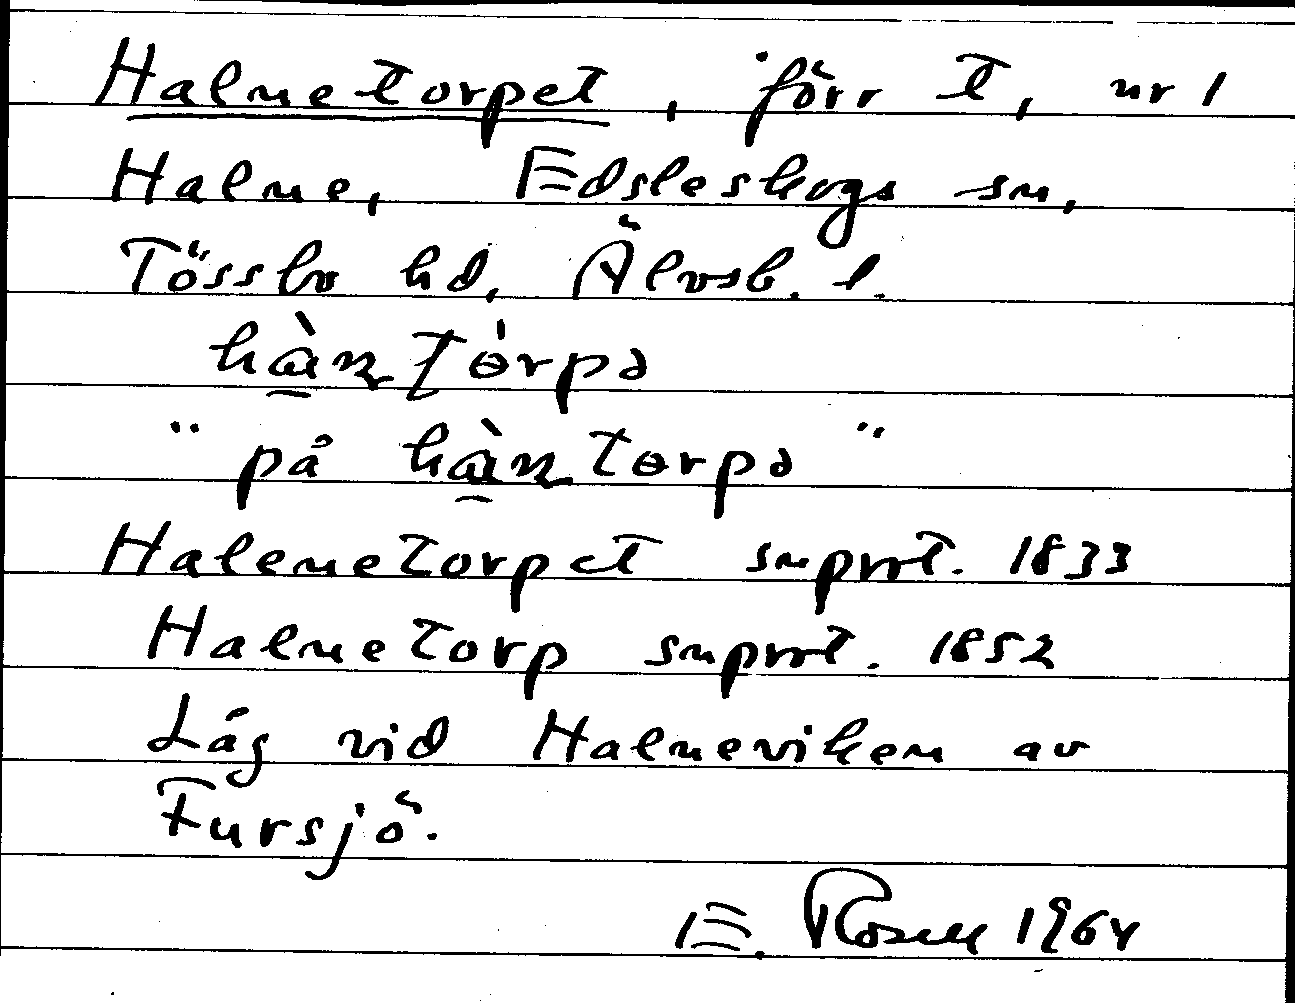 Halnetorpet, förr t, nr 1
Halne, Edsleskogs sn,
Tössbo hd, Älvsb. l.
hà̠n torpə
"på hà̠n torpə"
Halenetorpet snprt. 1833
Halnetorp snprt. 1852
Låg vid Halneviken av
Fursjö.
E. Rosell 1964